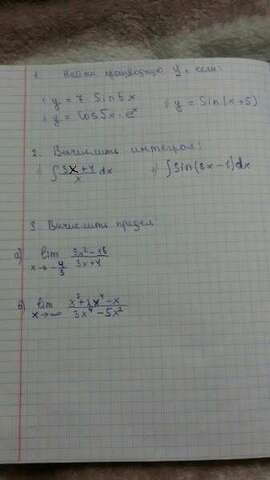 1. Найти производную y, если:
1) y = 7 Sin5x 3) y = Sin(x+5)
2) y = Cos5x · eˣ
2. Вычислить интеграл:
1) ∫ (5x+4)/x dx 2) ∫ Sin(8x-1)dx
3. Вычислить предел
а) lim x→-4/3 (3x²-16)/(3x+4)
б) lim x→∞ (x³+2x⁴-x)/(3x⁴-5x²)